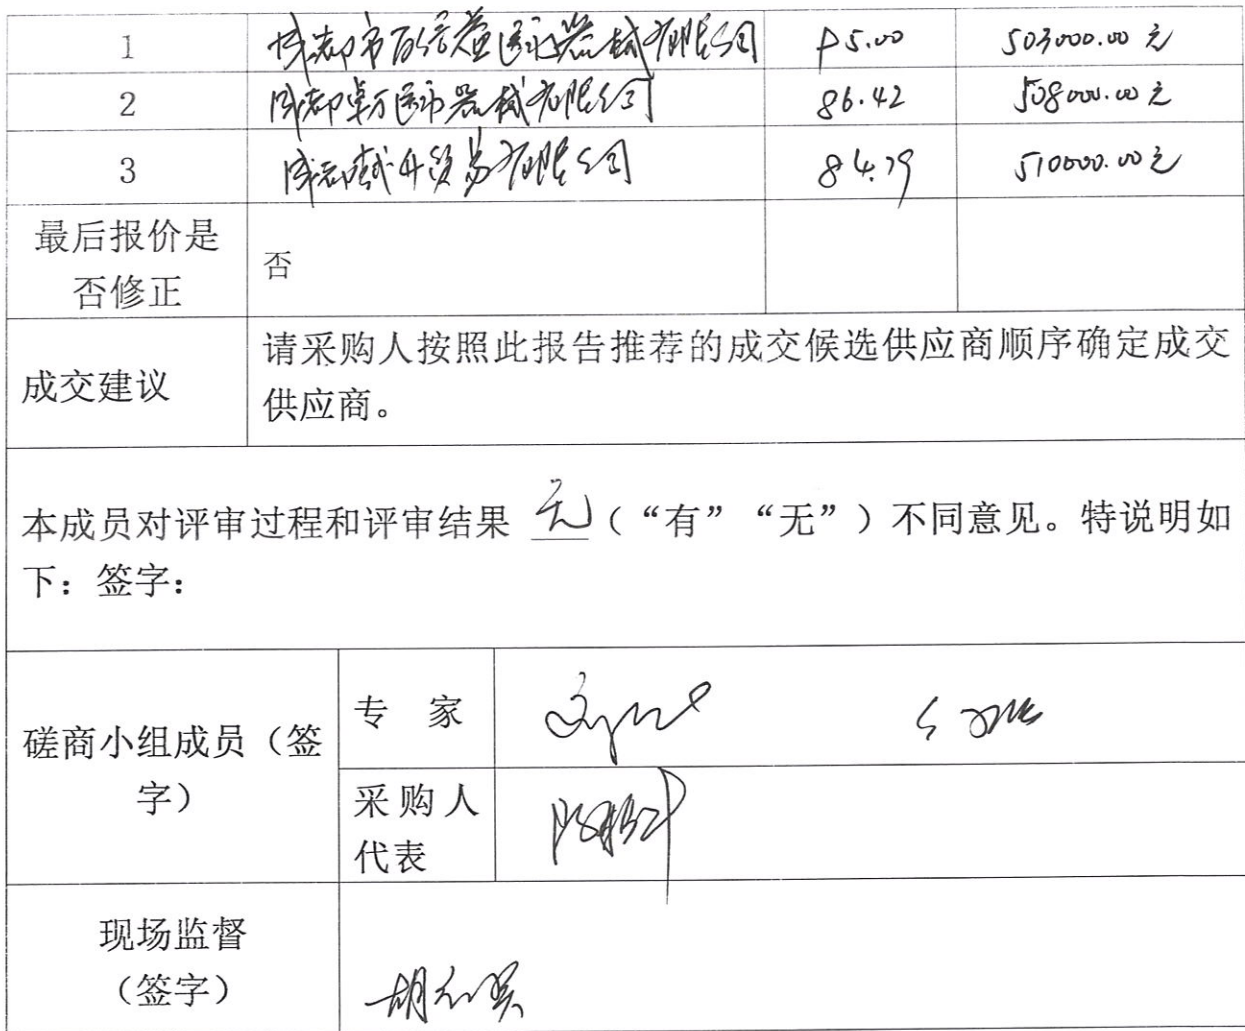 1 成都市百信益医疗器械有限公司 95.00 503000.00元
2 成都卓万医疗器械有限公司 86.42 508000.00元
3 成都 升贸易有限公司 84.79 510000.00元
最后报价是
否修正
否
成交建议
请采购人按照此报告推荐的成交候选供应商顺序确定成交
供应商。
本成员对评审过程和评审结果 无（“有”“无”）不同意见。特说明如
下：签字：
磋商小组成员（签
字）
专 家
采购人
代表
现场监督
（签字）